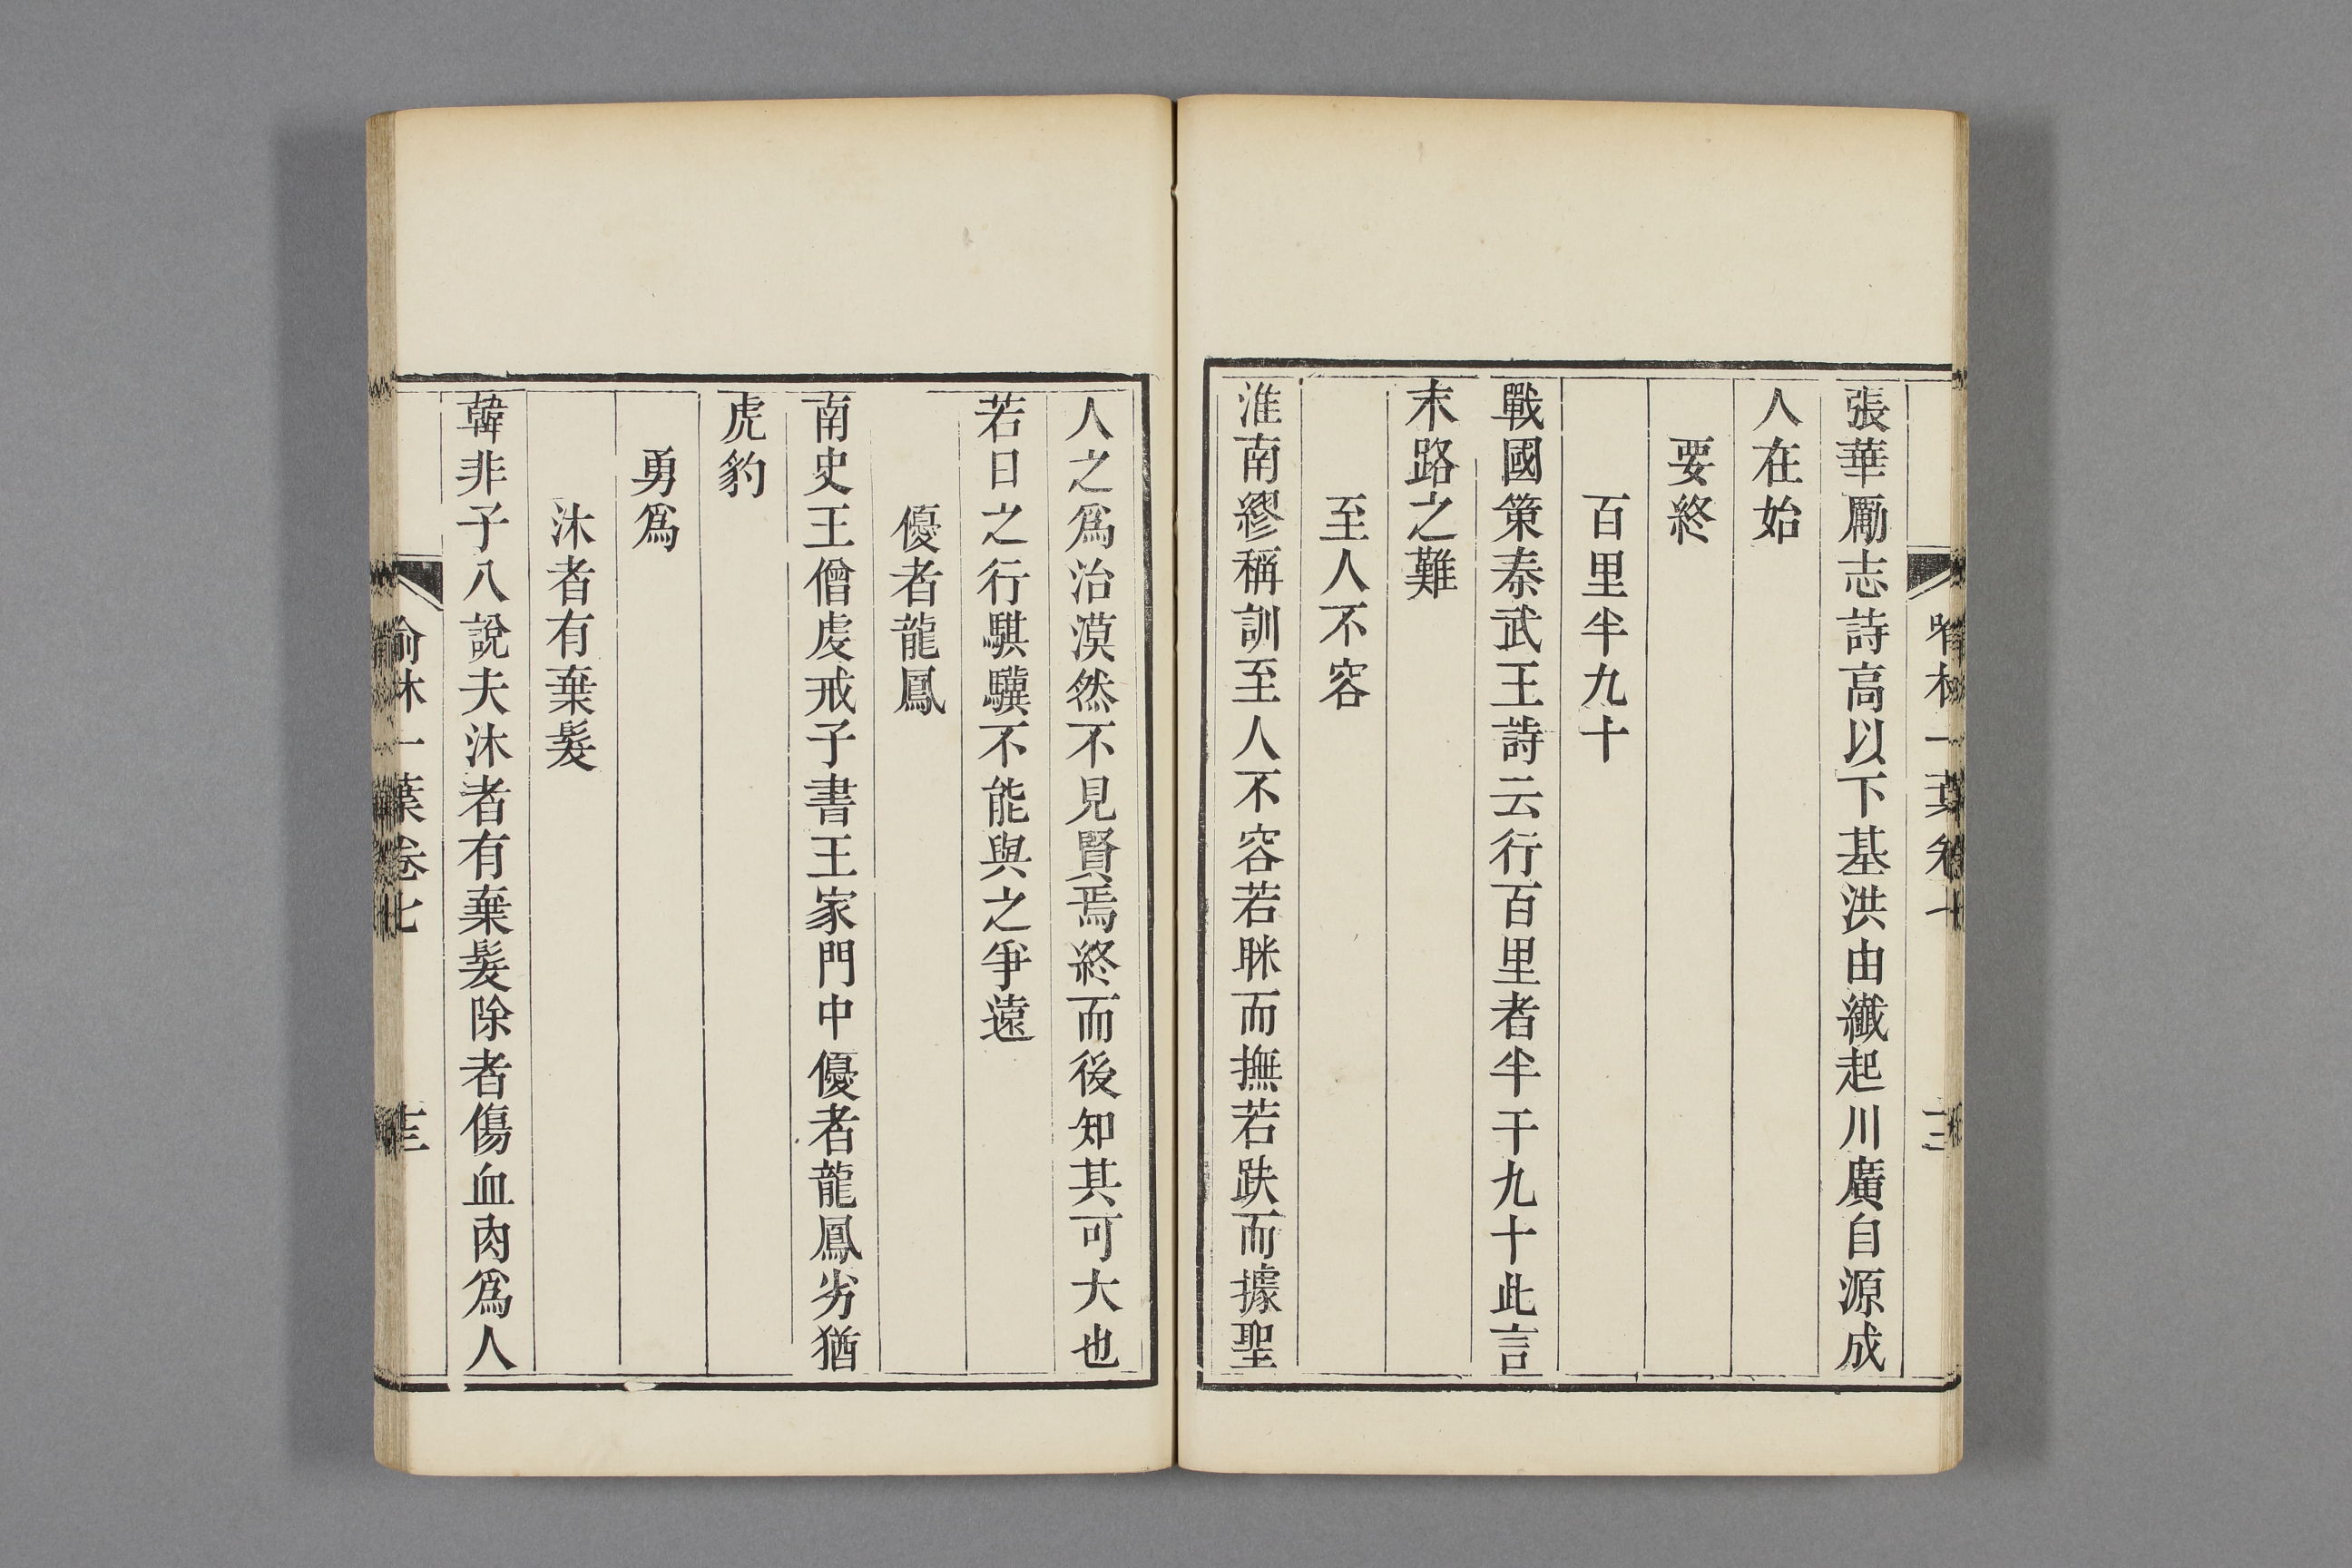 張華勵志詩高以下基洪由纖起川廣自源成
人在始
要終
百里半九十
戰國策秦武王詩云行百里者半于九十此言
末路之難
至人不容
淮南繆稱訓至人不容若眯而撫若跌而據聖
人之爲治漠然不見賢焉終而後知其可大也
若日之行騏驥不能與之爭遠
優者龍鳳
南史王僧虔戒子書王家門中優者龍鳳劣猶
虎豹
勇爲
沐者有棄髮
韓非子八說夫沐者有棄髮除者傷血肉爲人
喻林一葉卷七